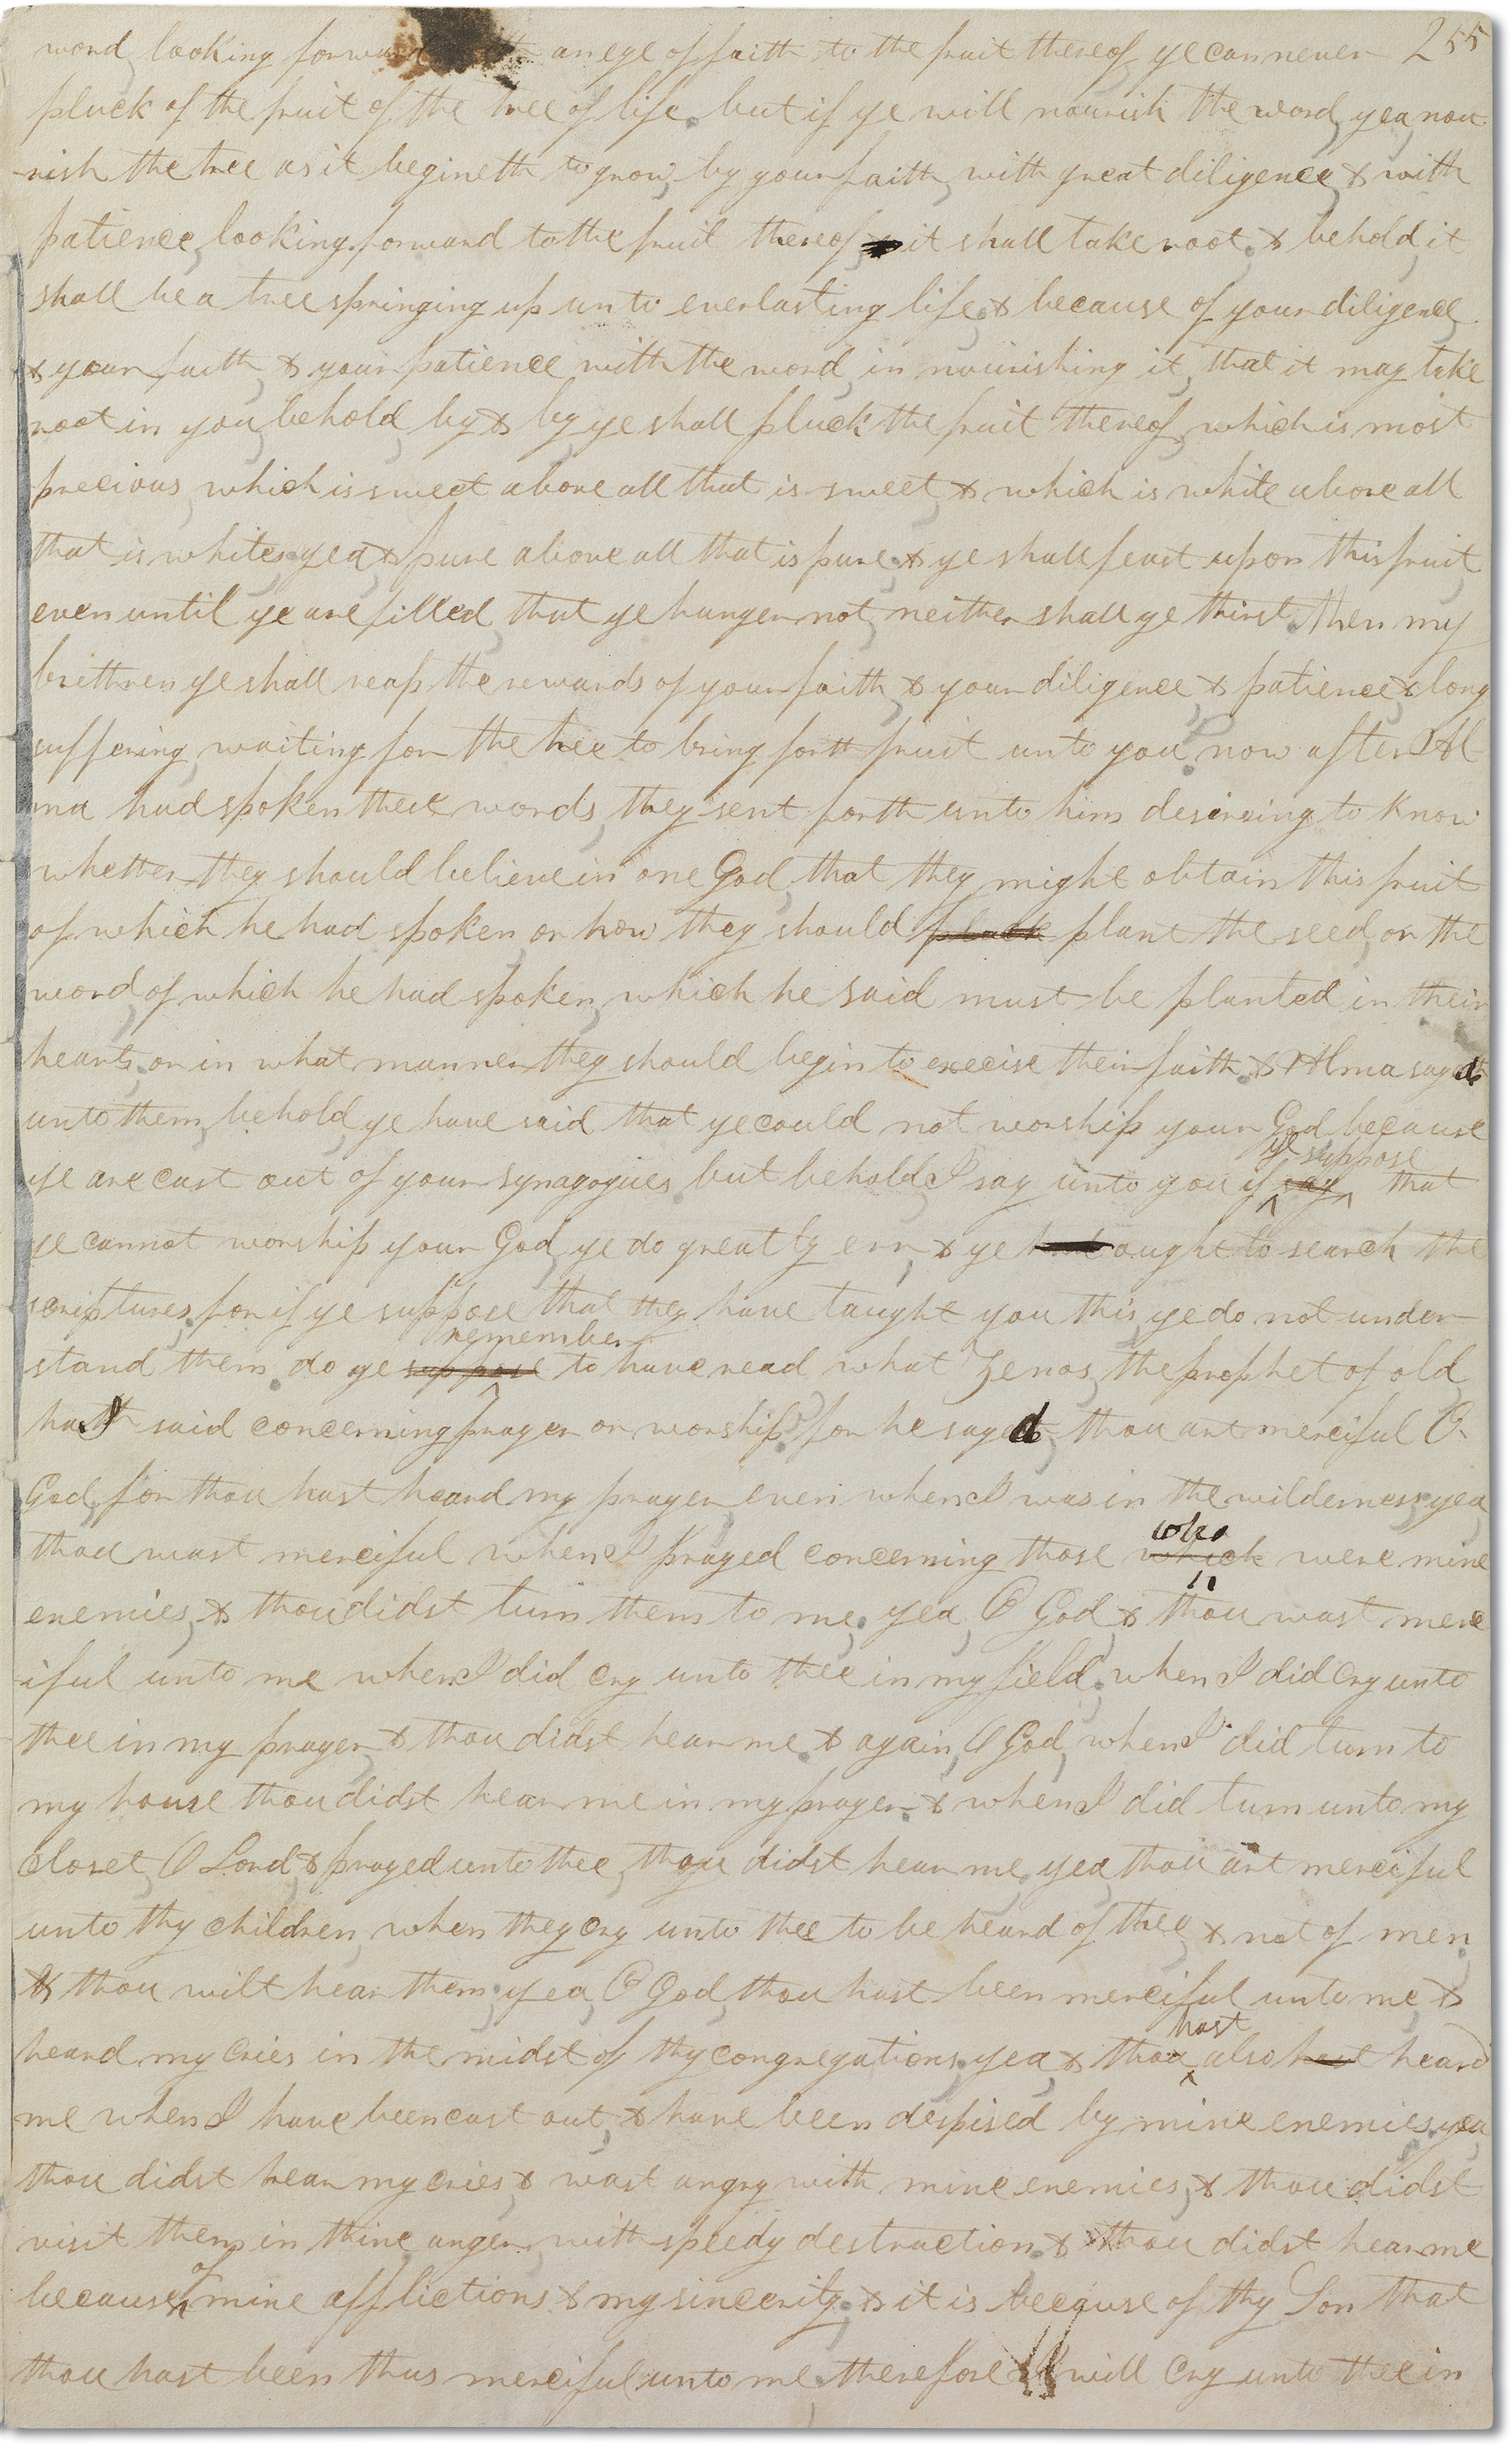 word, looking forward with an eye of faith to the fruit thereof, ye can never 255
pluck of the fruit of the tree of life. but if ye will nourish the word, yea, nou
-rish the tree as it begineth to grow, by your faith, with great diligence, & with
patience, looking forward to the fruit thereof, & it shall take root. & behold, it
shall be a tree springing up unto everlasting life. & because of your diligence
& your faith, & your patience with the word, in nourishing it, that it may take
root in you, behold, by & by, ye shall pluck the fruit thereof, which is most
precious, which is sweet above all that is sweet, & which is white above all
that is white; yea, & pure above all that is pure; & ye shall feast upon this fruit,
even until ye are filled, that ye hunger not, neither shall ye thirst. Then my
brethren, ye shall reap the rewards of your faith, & your diligence, & patience, & long
suffering, waiting for the tree to bring forth fruit unto you. now after Al
ma had spoken these words, they sent forth unto him desireing to know
whether they should believe in one God, that they might obtain this fruit
of which he had spoken, or how they should pluck plant the seed, or the
word, of which he had spoken, which he said must be planted in their
hearts; or in what manner they should begin to execise their faith. & Alma sayd
unto them, behold, ye have said that ye could not worship your God, because
ye suppose
ye are cast out of your synagogues. but behold, I say unto you, if say that
ye cannot worship your God, ye do greatly err, & ye had ought to search the
scriptures; for if ye suppose that they have taught you this, ye do not under-
remember
stand them. do ye suppose to have read what Zenos, the prophet of old,
has said concerning prayer or worship? for he sayd, thou art merciful O
God, for thou hast heard my prayer, even when I was in the wilderness; yea
who
thou wast merciful when I prayed concerning those which were mine
enemies, & thou didst turn them to me. yea, O God, & thou wast merc
-iful unto me when I did cry unto thee in my field; when I did cry unto
thee in my prayer, & thou didst hear me. & again, O God, when I did turn to
my house thou didst hear me in my prayer. & when I did turn unto my
closet, O Lord, & prayed unto thee, thou didst hear me, yea, thou art merciful
unto thy children, when they cry unto thee to be heard of thee, & not of men,
& thou wilt hear them; yea, O God, thou hast been merciful unto me, &
hast
heard my cries in the midst of thy congregations; yea, & thou also hast heard
me when I have been cast out, & have been despised by mine enemies; yea,
thou didst hear my cries, & wast angry with mine enemies, & thou didst
visit them in thine anger, with speedy destruction; & thou didst hear me
of
because mine afflictions & my sincerity; & it is because of thy Son that
thou hast been thus merciful unto me; therefore I will cry unto thee in